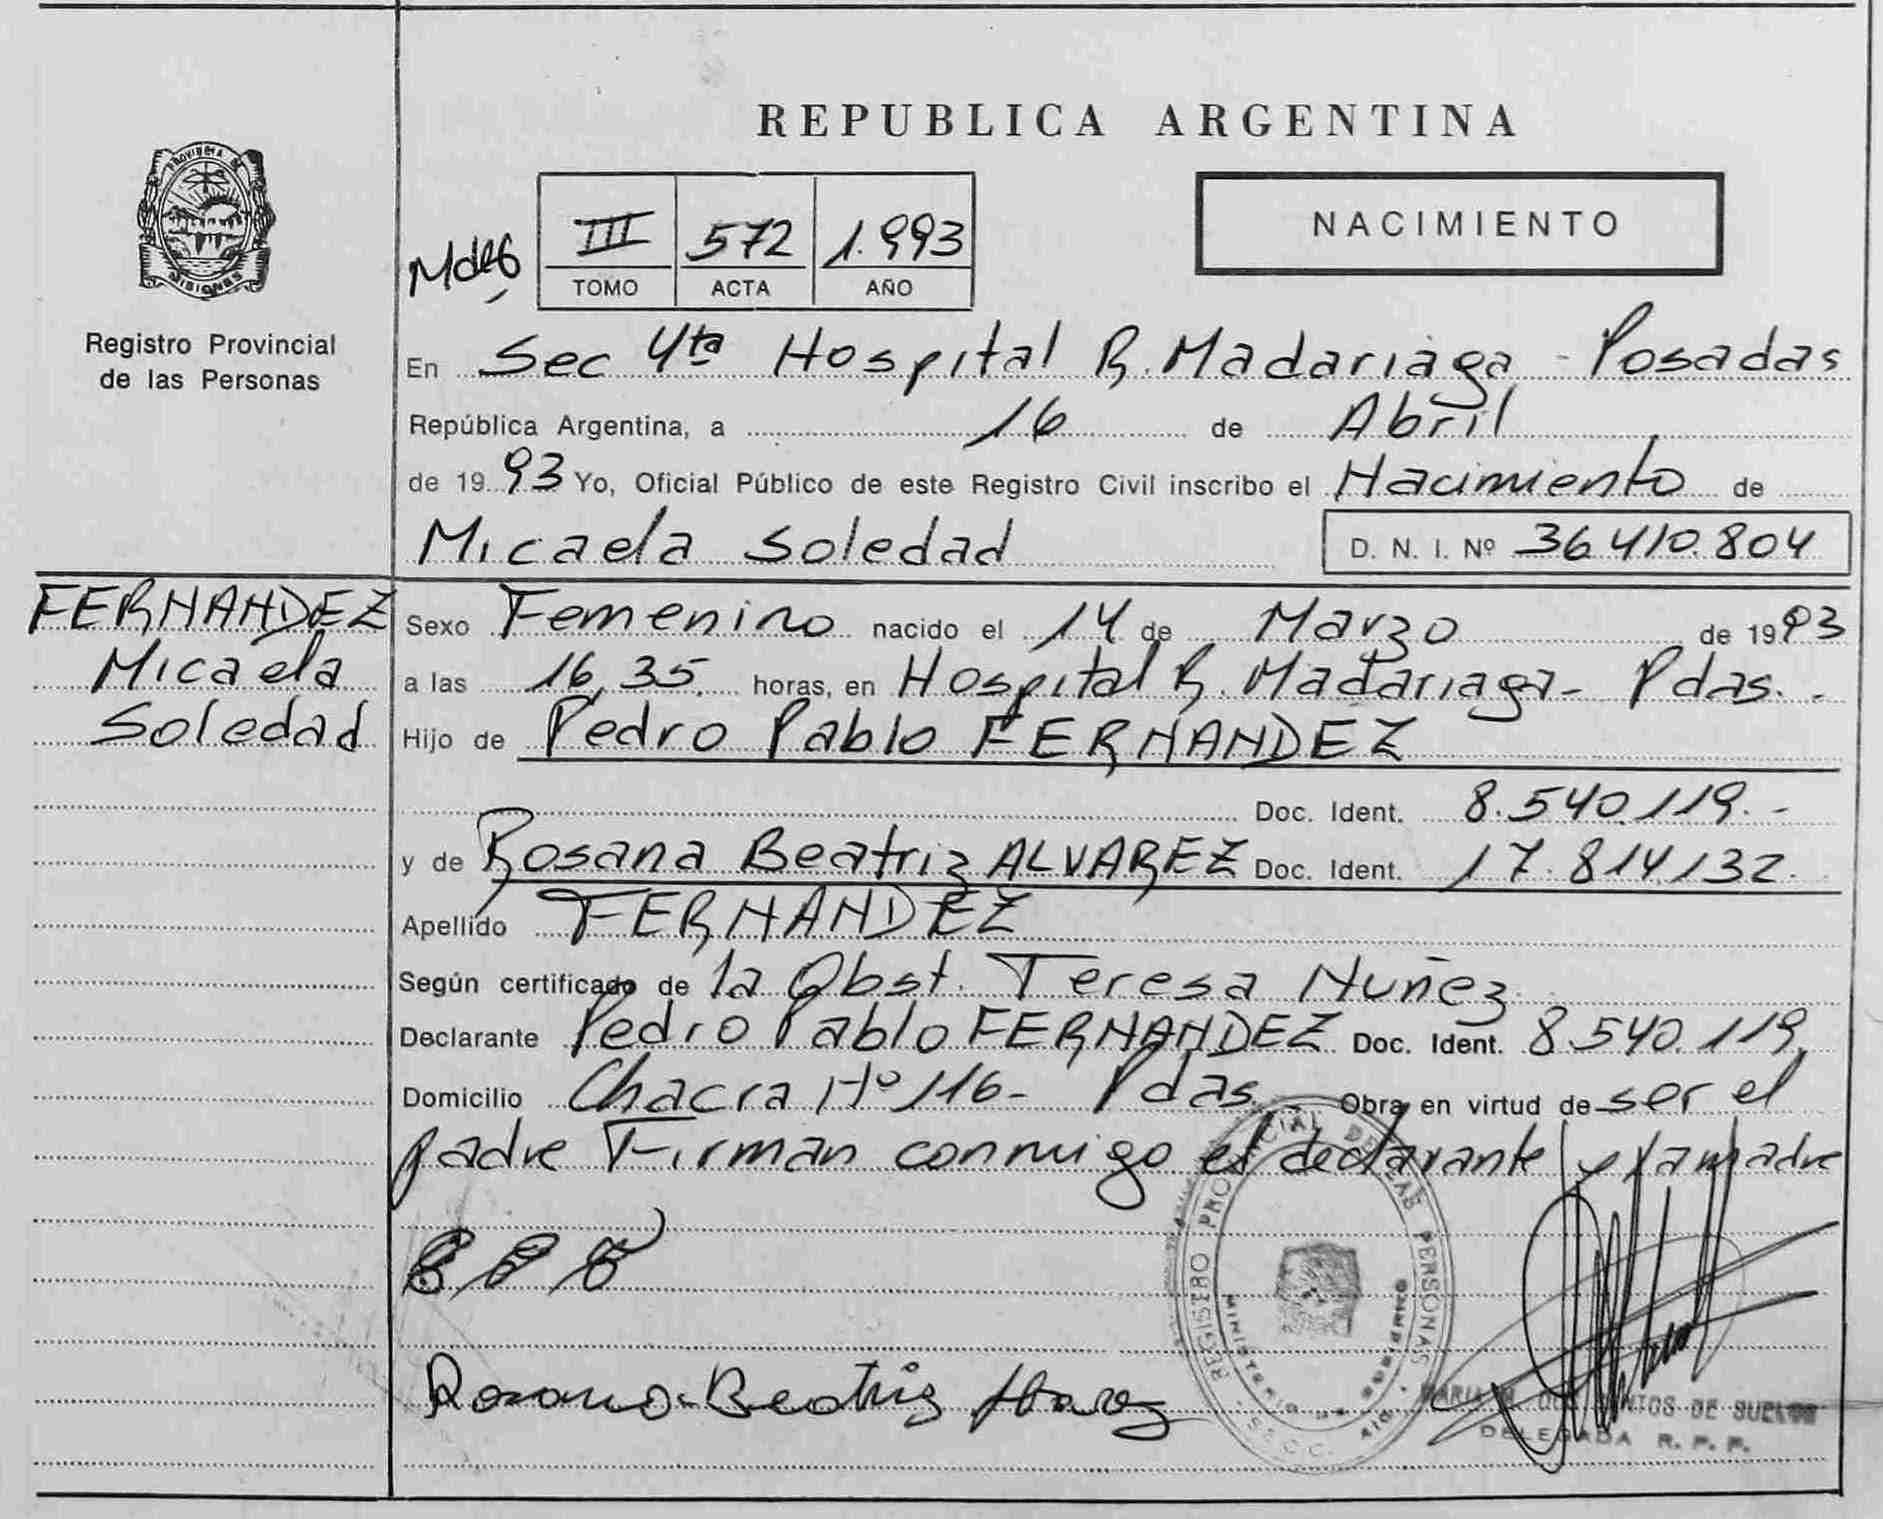 REPUBLICA ARGENTINA
PROVINCIA DE MISIONES
Registro Provincial
de las Personas
III 572 1.993
TOMO ACTA AÑO
NACIMIENTO
En Sec 4ta Hospital R. Madariaga - Posadas
República Argentina, a 16 de Abril
de 1993 Yo, Oficial Público de este Registro Civil inscribo el Nacimiento de
Micaela Soledad D. N. I. Nº 36.410.804
FERNANDEZ
Micaela
Soledad
Sexo Femenino nacido el 14 de Marzo de 1993
a las 16,35 horas, en Hospital R. Madariaga - Pdas. -
Hijo de Pedro Pablo FERNANDEZ
Doc. Ident. 8.540.119. -
y de Rosana Beatriz ALVAREZ Doc. Ident. 17.814.132.
Apellido FERNANDEZ
Según certificado de la Obst. Teresa Nuñez
Declarante Pedro Pablo FERNANDEZ Doc. Ident. 8.540.119
Domicilio Chacra Nº 116 - Pdas. Obra en virtud de ser el
padre Firman conmigo el declarante y la madre
REGISTRO PROVINCIAL DE LAS PERSONAS
MINISTERIO DE GOBIERNO
Rosana Beatriz
DE SUELOS
DELEGADA R. P. P.